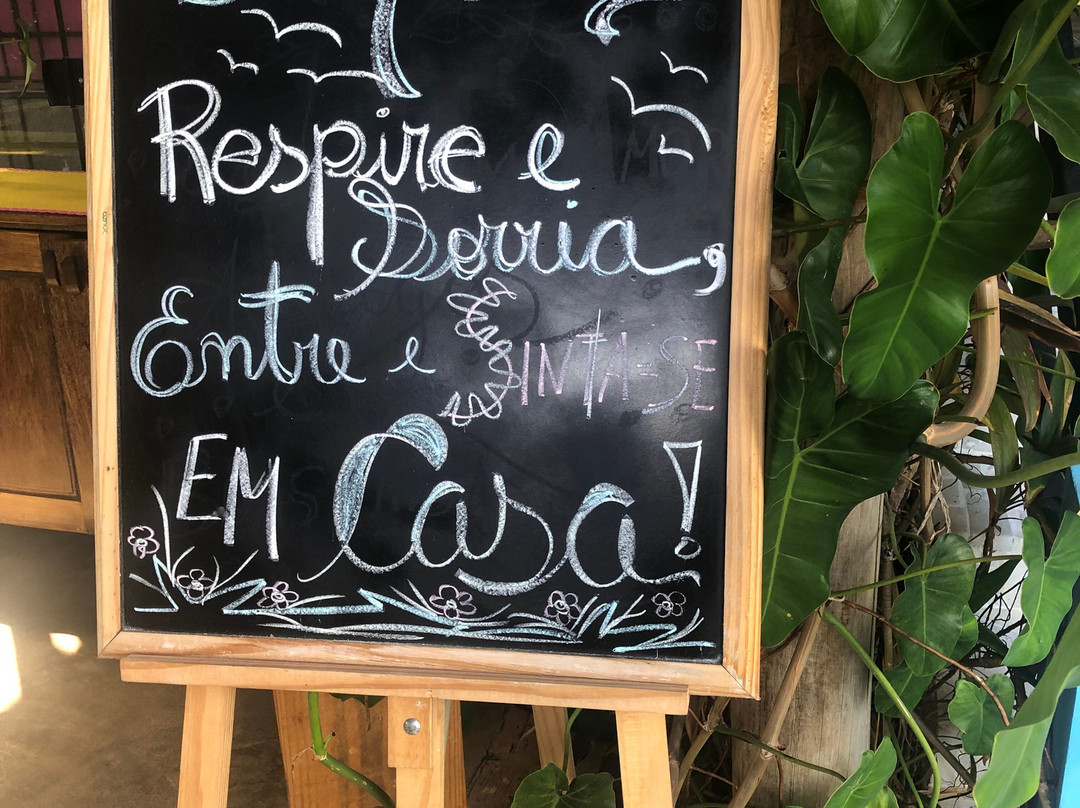 Respire e
Sorria,
Entre e SINTA-SE
EM Casa!